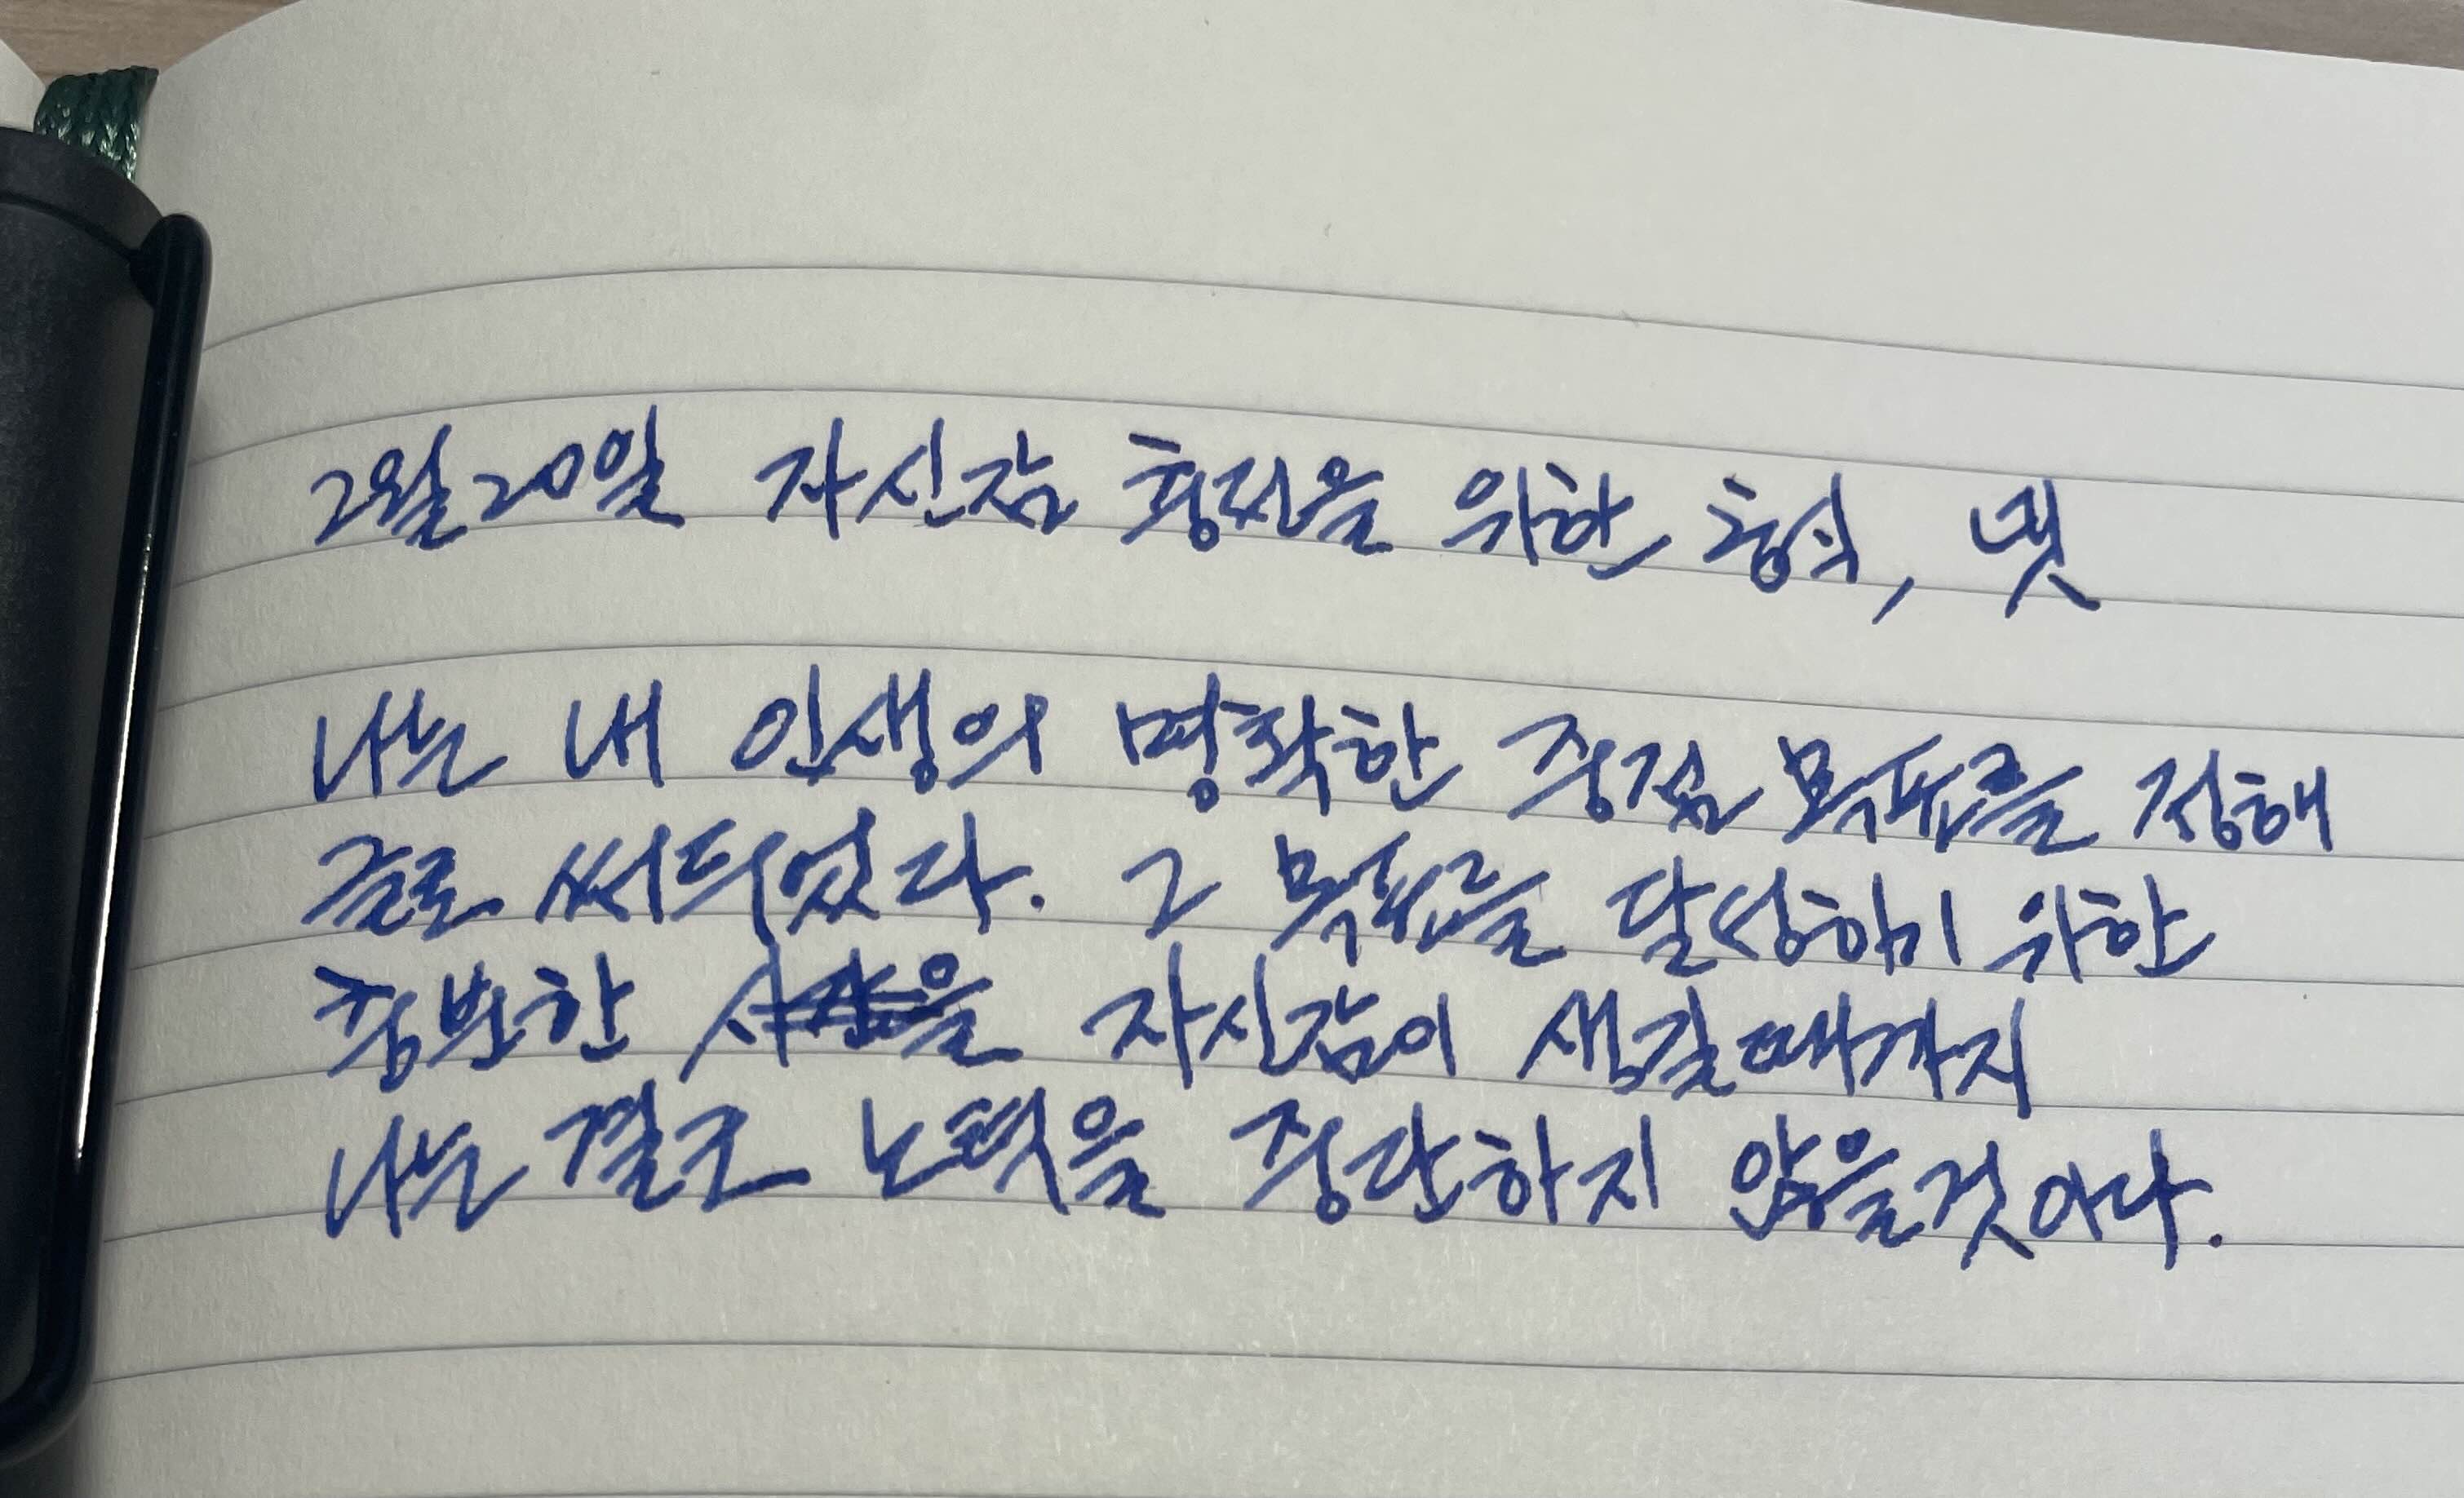 2월20일 자신감 충전을 위한 형식, 넷
나는 내 인생의 명확한 중점 목표를 정해
글로 써두었다. 그 목표를 달성하기 위한
충분한 자신감이 생길때까지
나는 결코 노력을 중단하지 않을것이다.